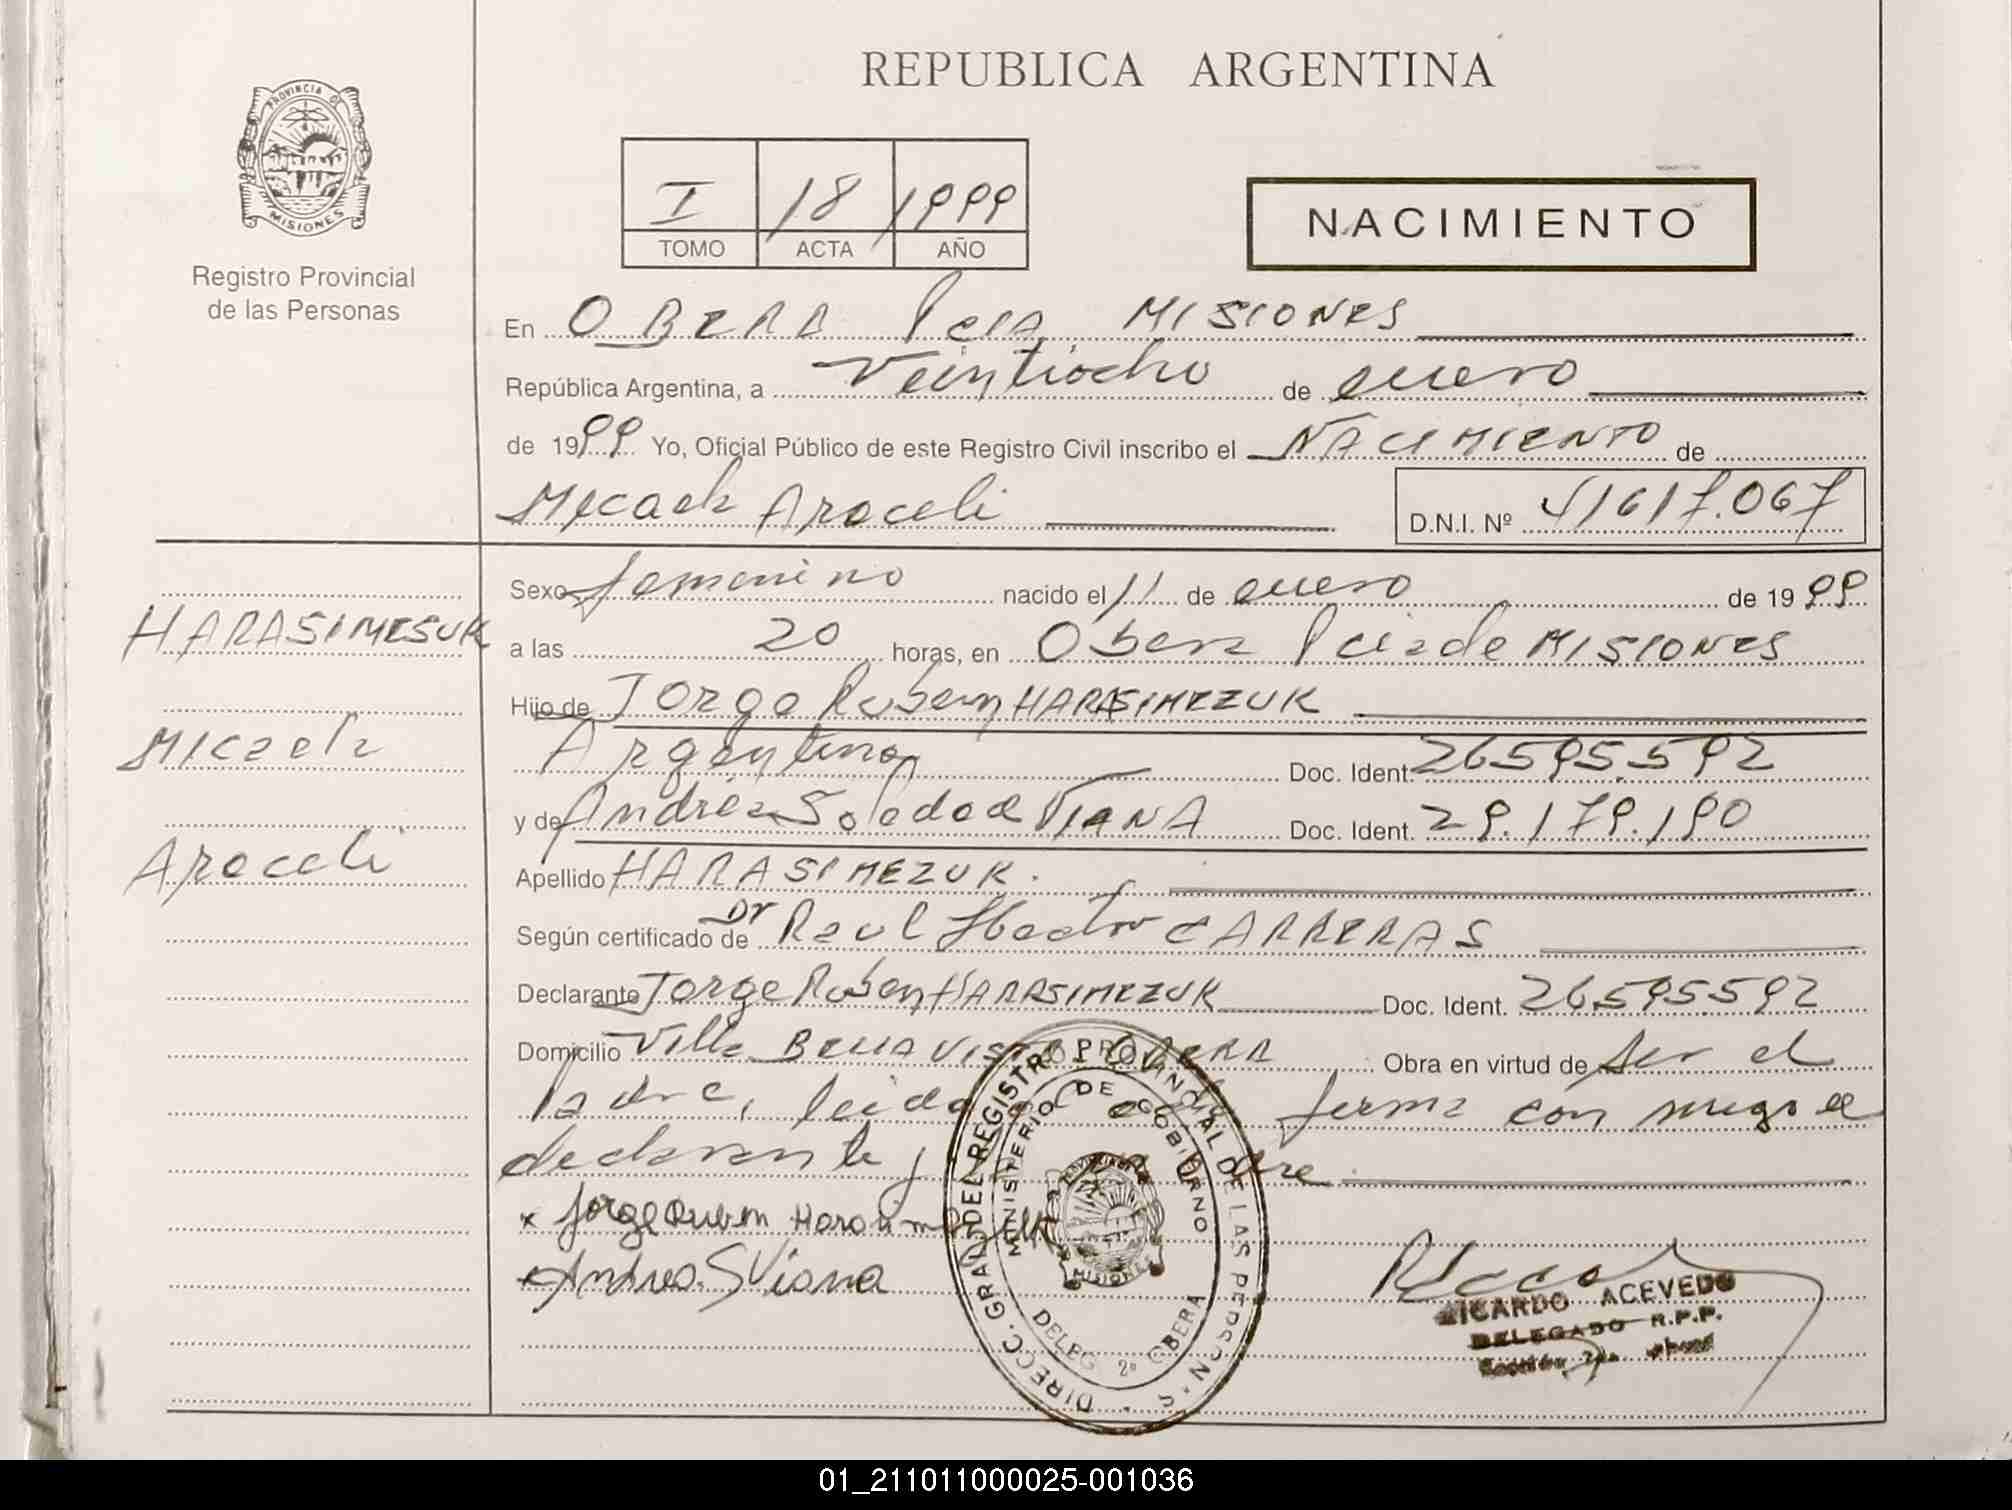 REPUBLICA ARGENTINA
PROVINCIA DE
MISIONES
Registro Provincial
de las Personas
I 18 1999
TOMO ACTA AÑO
NACIMIENTO
En OBERA Pcia. MISIONES
República Argentina, a Veintiocho de enero
de 1999 Yo, Oficial Público de este Registro Civil inscribo el NACIMIENTO de
Micaela Araceli
D.N.I. Nº 41617.067
HARASIMESUK
Micaela
Araceli
Sexo femenino nacido el 11 de enero de 1999
a las 20 horas, en Obera Pcia de MISIONES
Hijo de Jorge Ruben HARASIMEZUK
Argentino Doc. Ident. 26595.592
y de Andrea Soledad VIANA Doc. Ident. 29.179.190
Apellido HARASIMEZUK.
Según certificado de Dr Raul Hector CARRERAS
Declarante Jorge Ruben HARASIMEZUK Doc. Ident. 26595592
Domicilio Villa BELLA VISTA OBERA Obra en virtud de ser el
Padre, leida el acta firma con migo el
declarante y
Jorge Ruben
Andrea S Viana
DIRECC. GRAL. DEL REGISTRO PROVINCIAL DE LAS PERSONAS
MINISTERIO DE GOBIERNO
MISIONES
DELEG 2º OBERA
RICARDO ACEVEDO
DELEGADO R.P.P.
01_211011000025-001036